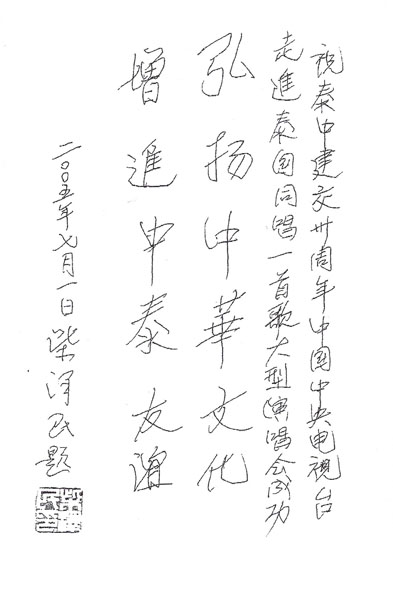 祝泰中建交卅周年中国中央电视台
走進泰国同唱一首歌大型演唱会成功
弘扬中華文化
增進中泰友谊
二〇〇五年七月一日柴泽民题